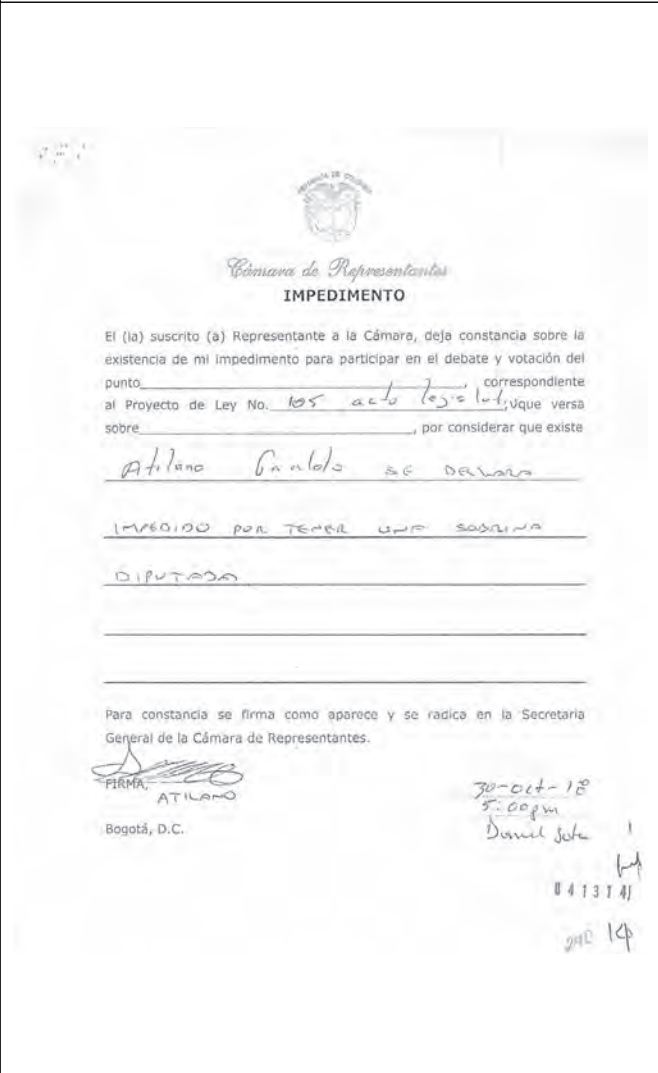 Cámara de Representantes
IMPEDIMENTO
El (la) suscrito (a) Representante a la Cámara, deja constancia sobre la
existencia de mi impedimento para participar en el debate y votación del
punto____, correspondiente
al Proyecto de Ley No. 105 acto legislativo que versa
sobre____, por considerar que existe
Atilano Giraldo SE DECLARA
IMPEDIDO POR TENER UNA SOBRINA
DIPUTADA
Para constancia se firma como aparece y se radica en la Secretaria
General de la Cámara de Representantes.
FIRMA,
ATILANO
30-oct-18
5:00pm
Bogotá, D.C.